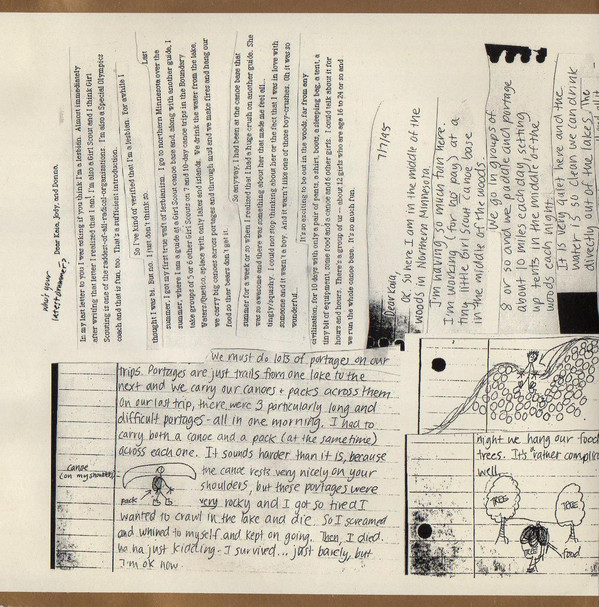 What's your latest grammer?
Dear Kaia, Jody, and Donna.
In my last letter to you I was asking if you think I'm a lesbian. Almost immediately
after writing that letter I realized that I am! I'm also a Girl Scout and I think Girl
Scouting is one of the raddest-of-all-radical-organizations! I'm also a Special Olympics
coach and that is fun, too. That's a sufficient introduction.
So I've kind of verified that I'm a lesbian. For awhile I
thought I was bi. But no. I just don't think so. Last
summer I got my first true waft of lesbianism. I go to northern Minnesota over the
summer, where I am a guide at a Girl Scout canoe base and, along with another guide, I
take groups of 5 or 6 other Girl Scouts on 7 and 10-day canoe trips in the Boundary
Waters/Quetico, a place with only lakes and islands. We drink the water from the lake,
we carry big canoes across portages and through mud and we make fires and hang our
food so that bears don't get it.
So anyway, I had been at the canoe base that
summer for a week or so when I realized that I had a huge crush on another guide. She
was so awesome and there was something about her that made me feel all...
tingly/squishy. I could not stop thinking about her or the fact that I was in love with
someone and it wasn't a boy. And it wasn't like one of those boy-crushes. Oh it was so
wonderful.
It's so exciting to be out in the woods, far from any
civilization, for 10 days with only a pair of pants, a shirt, boots, a sleeping bag, a tent, a
tiny bit of equipment, some food and a canoe and 6 other girls. I could talk about it for
hours and hours. There's a group of us -- about 12 girls who are age 16 to 24 or so and
we run the whole canoe base. It's so much fun.
7/7/95
Dear Kaia,
OK so here I am in the middle of the
woods in Northern Minnesota.
I'm having so much fun here.
I'm working (for no pay) at a
tiny little Girl Scout canoe base
in the middle of the woods.
We go in groups of
8 or so and we paddle and portage
about 10 miles each day, setting
up tents in the middle of the
woods each night.
It is very quiet here and the
water is so clean we can drink
directly out of the lakes. The
We must do lots of portages on our
trips. Portages are just trails from one lake to the
next and we carry our canoes + packs across them
On our last trip, there were 3 particularly long and
difficult portages - all in one morning. I had to
carry both a canoe and a pack (at the same time)
across each one. It sounds harder than it is, because
the canoe rests very nicely on your
shoulders, but these portages were
very rocky and I got so tired I
wanted to crawl in the lake and die. So I screamed
and whined to myself and kept on going. Then, I died.
ha ha just kidding - I survived... just barely, but
I'm ok now.
canoe
(on my shoulders)
pack
night we hang our food
trees. It's rather complic
well.
TREE
TREE
food